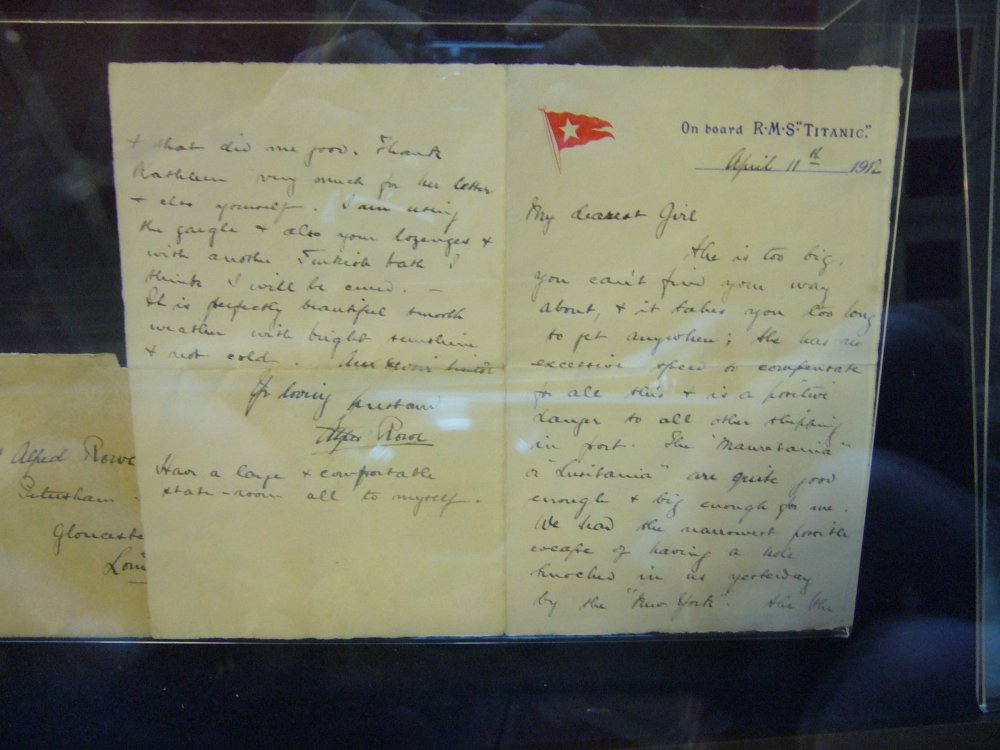 On board R·M·S "TITANIC."
April 11th 1912
My dearest Girl
She is too big.
you can't find your way
about, & it takes you too long
to get anywhere; She has no
excessive speed to compensate
for all this & is a positive
danger to all other shipping
in port. The "Mauretania"
or "Lusitania" are quite good
enough & big enough for me.
We had the narrowest possible
escape of having a hole
knocked in us yesterday
by the "New York". the
& that did me good. Thank
Kathleen very much for her letter
& also yourself. I am using
the gargle & also your lozenges &
with another Turkish bath I
think I will be cured. —
It is perfectly beautiful smooth
weather with bright sunshine
& not cold. Au revoir
Yr loving husband
Alfred Rowe
Have a large & comfortable
state-room all to myself.
Alfred Rowe
Petersham
Glouceste
Lon